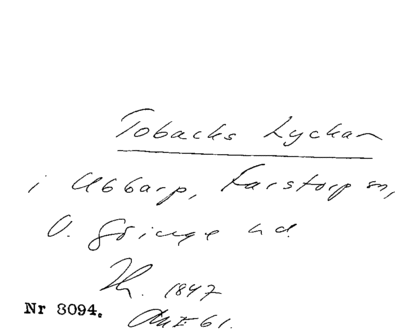 Tobacks Lyckan
i Ubbarp, Farstorp sn,
V. Göinge hd.
Th. 1847
Nr 3094.